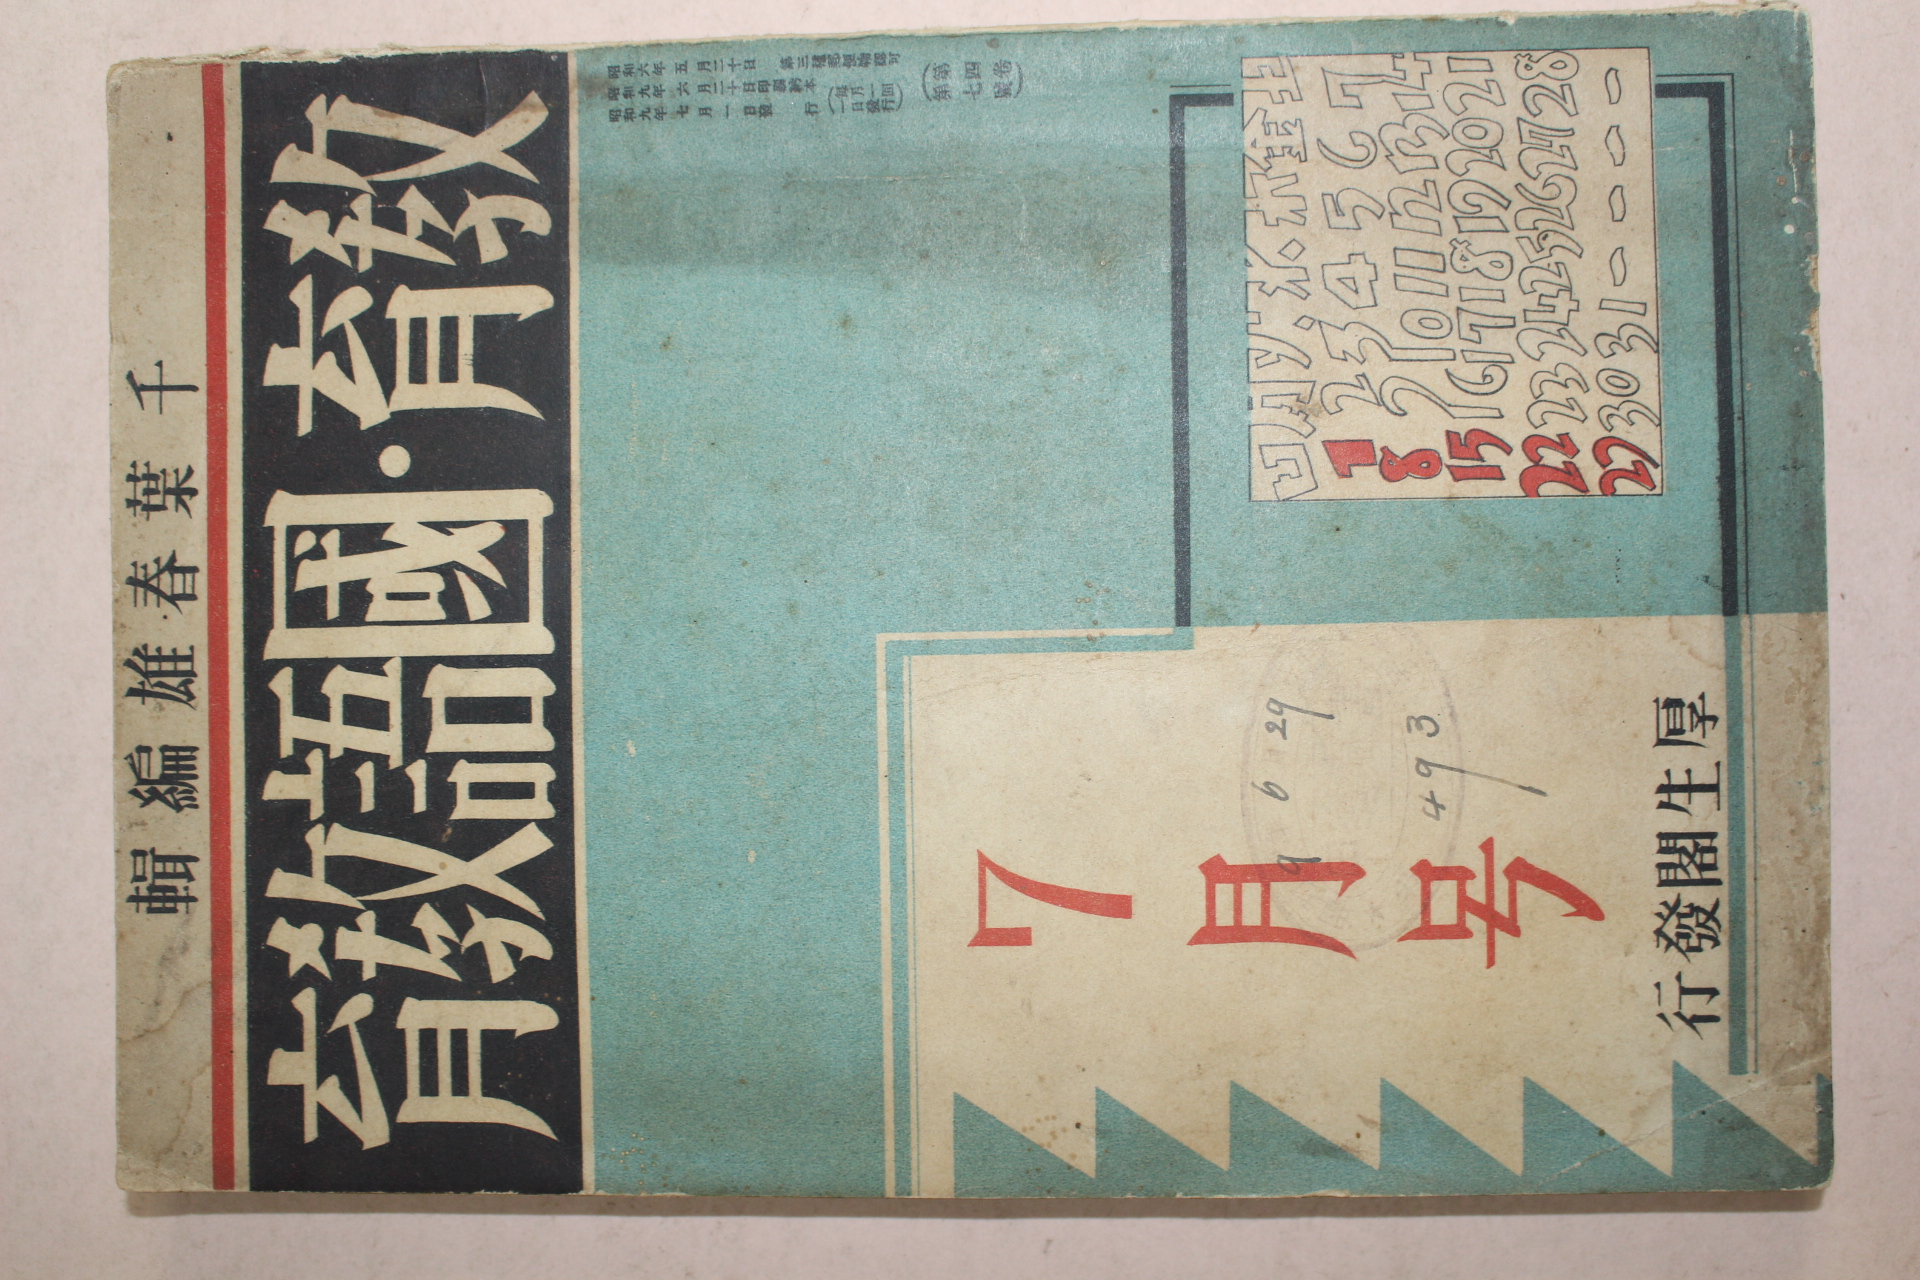 千葉春雄編輯
教育・國語教育
昭和六年五月二十日 第三種郵便物認可
昭和九年六月二十日印刷納本
昭和九年七月一日發行
(毎月一回一日發行)
(第四卷 第七號)
日月火水木金土
1 2 3 4 5 6 7
8 9 10 11 12 13 14
15 16 17 18 19 20 21
22 23 24 25 26 27 28
29 30 31
7月号
9 6 29
493
厚生閣發行